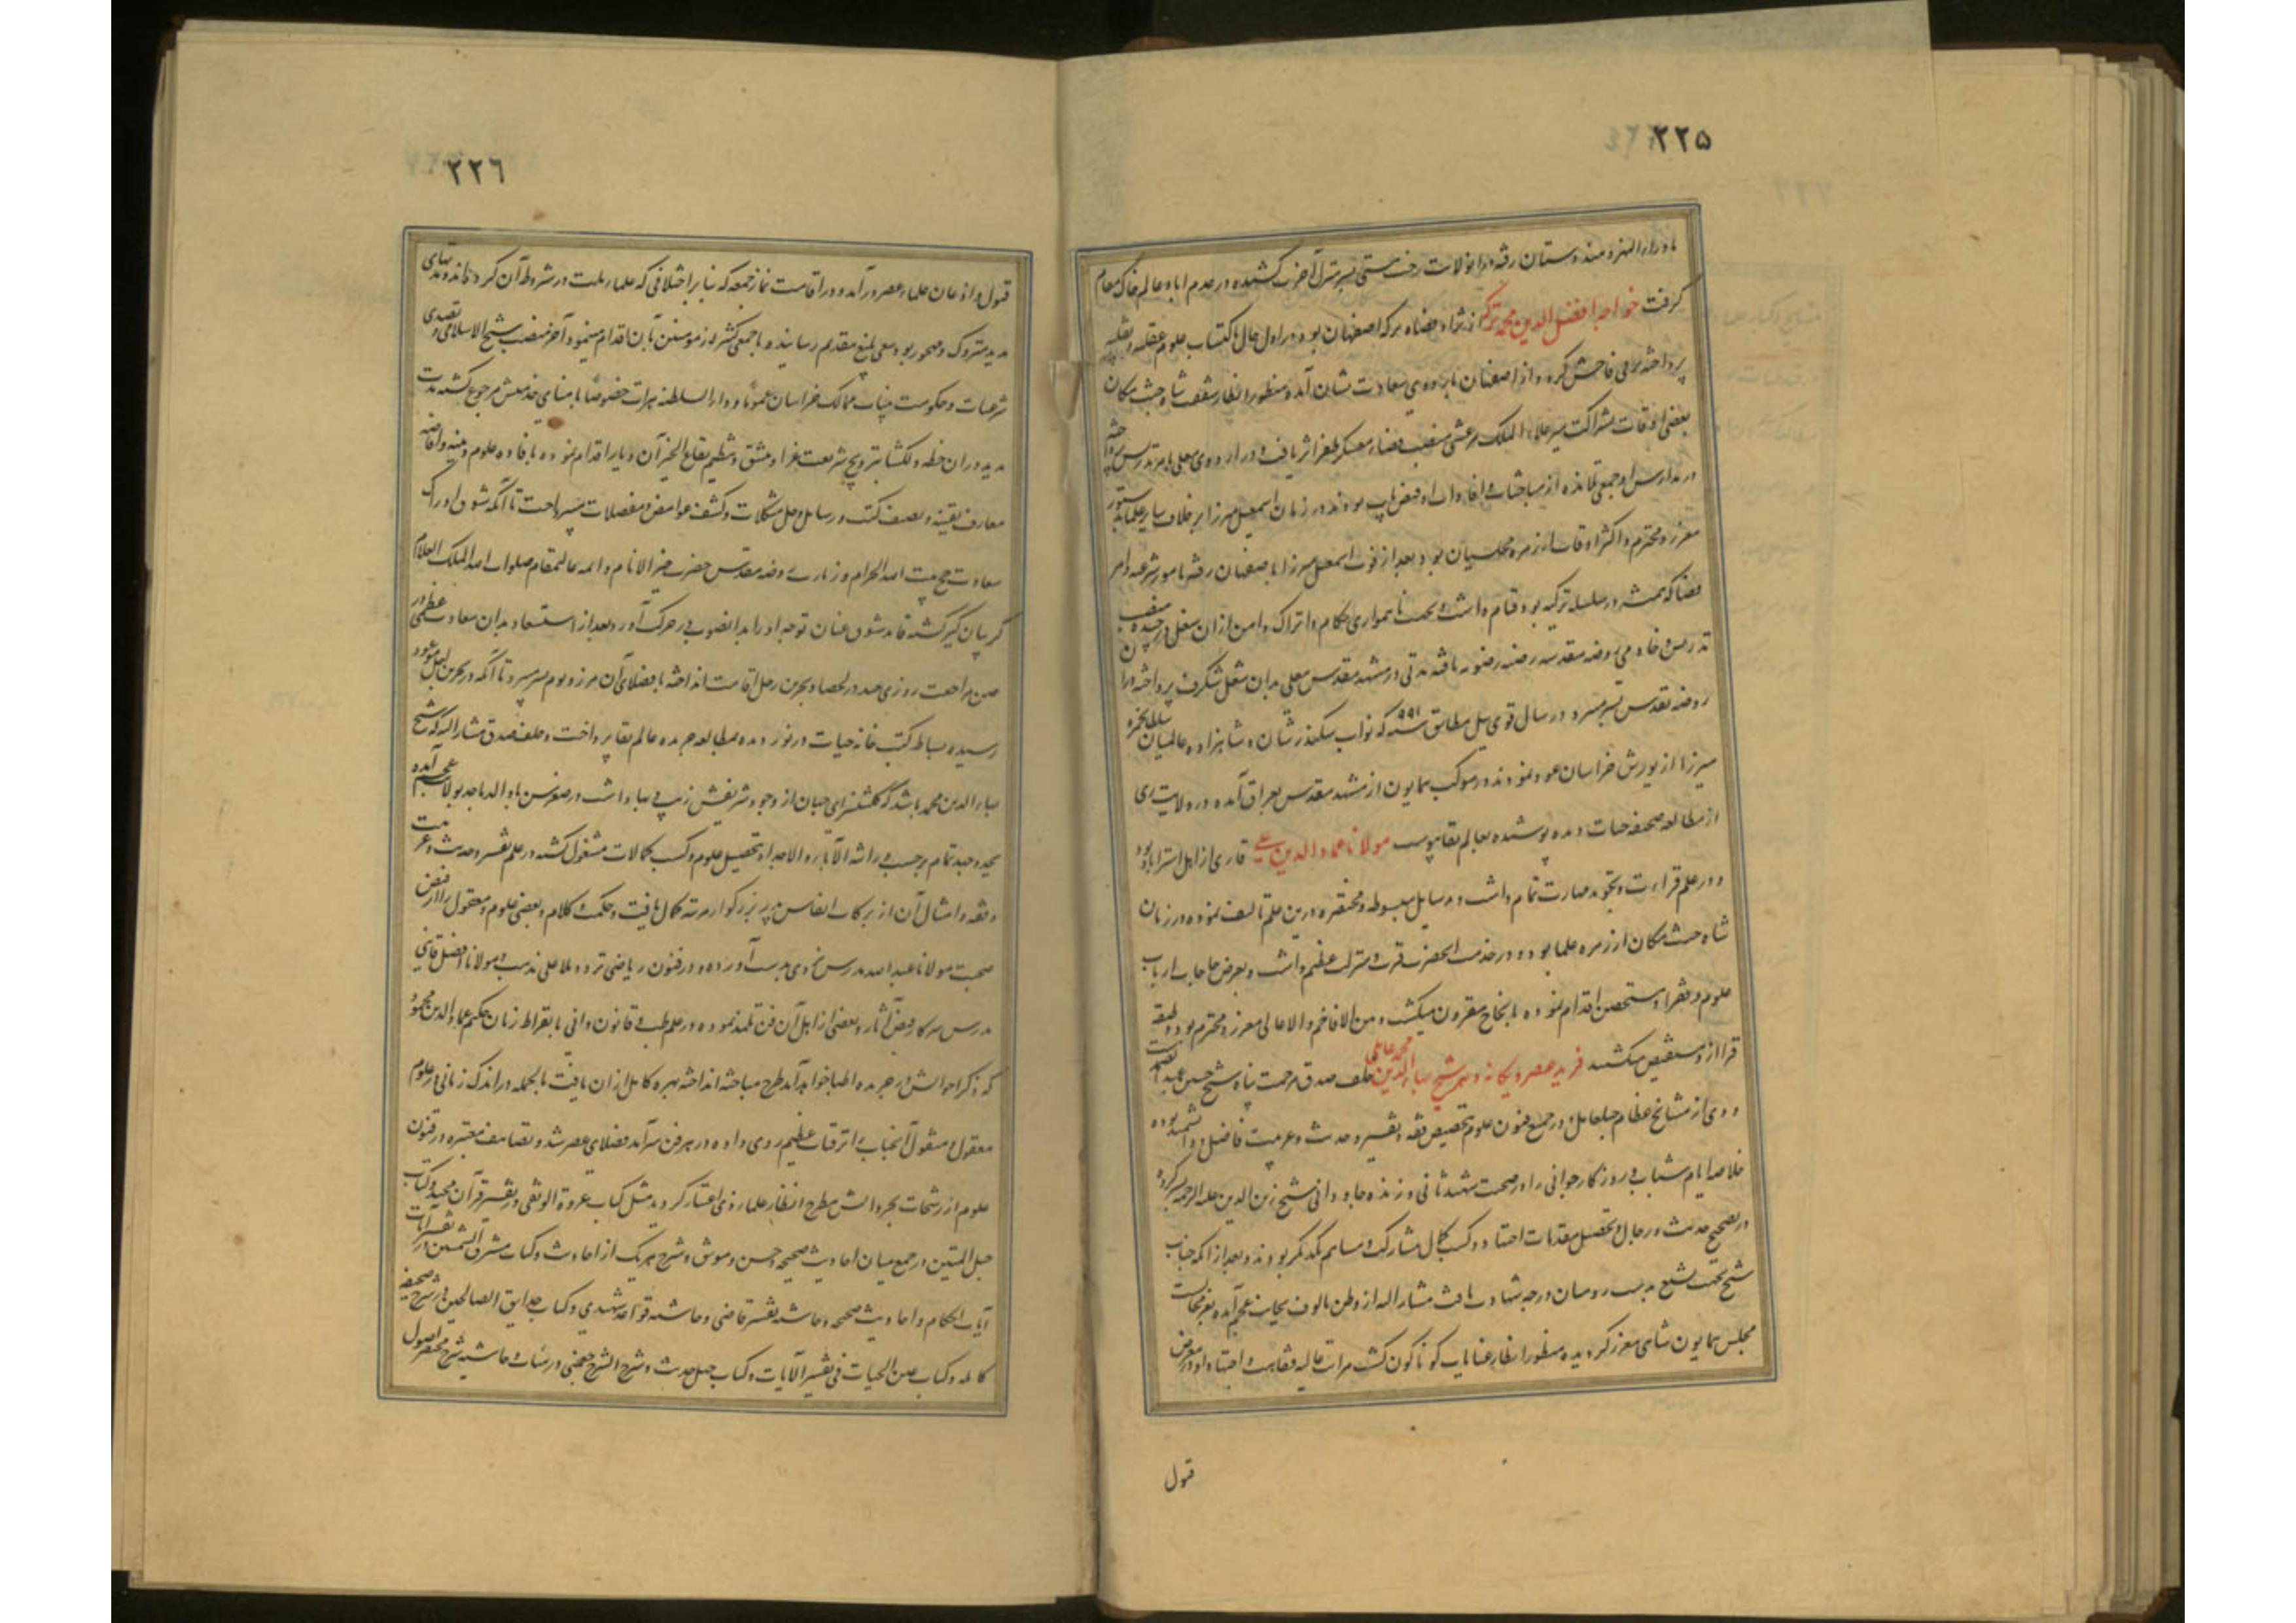 ۲۲۵
ماوراءالنهر و هندوستان رفته در انولایت رخت هستی بسرمنزل آخرت کشیده در عدم اباد عالم خاک مقام
گرفت خواجه افضل الدین محمد ترکه از نژاد قضاه ترکه اصفهان بود در اول حال باکتساب علوم عقلیه و نقلیه
پرداخته ترقی فاحش کرد و از اصفهان باردوی سعادت نشان آمده منظور انظار شفقت شاه جنت مکان
بعضی اوقات بشراکت میر علاء الملک مرعشی منصب قضاء معسکر ظفر اثر یافت و در اردوی معلی بامر تدریس پرداخته
در مدارس او جمعی تلامذه از مباحثات و افادات او فیض یاب بودند در زمان اسمعیل میرزا بر خلاف سایر علما بدستور
معزز و محترم و اکثر اوقات از زمره مجلسیان بود بعد از فوت اسمعیل میرزا باصفهان رفته بامور شرعیه و امر
قضا که همیشه در سلسله ترکیه بود قیام داشت و بجهت ناهمواری حکام و اتراک دامن ازان شغل در چیده منصب
تدریس خادمی روضه مقدسه رضیه رضویه یافته مدتی در مشهد مقدس معلی بدان شغل شگرف پرداخته دران
روضه تقدس بسر میبرد در سال قوی ئیل مطابق سنه ۹۹۱ که نواب سکندر شان و شاهزاده عالمیان سلطان حمزه
میرزا از یورش خراسان عود نمودند در موکب همایون از مشهد مقدس بعراق آمده در ولایت ری
از مطالعه صحیفه حیات دیده پوشیده بعالم بقا پیوست مولانا عماد الدین علی قاری از اهل استراباد بود
و در علم قراءت و تجوید مهارت تمام داشت و رسایل مبسوطه و مختصره درین علم تالیف نموده در زمان
شاه جنت مکان از زمره علما بود و در خدمت انحضرت قرب و منزلت عظیم داشت و بعرض حاجات ارباب
علوم و فقرا و مستحقین اقدام نموده بانجاح مقرون میگشت و بین الافاخم والاعالی معزز و محترم بود و طبقه
قرا ازو مستفیض میگشتند فرید عصر و یگانه دهر شیخ بهاء الدین محمد عاملی خلف صدق مرحمت پناه شیخ حسین عبد الصمدست
و وی از مشایخ عظام جبل عامل و در جمیع فنون علوم بتخصیص فقه و تفسیر و حدیث و عربیت فاضل و دانشمند بوده
خلاصه ایام شباب و روزگار جوانی را در صحبت شهید ثانی و زنده جاودانی شیخ زین الدین علیه الرحمه بسر کرده
در تصحیح حدیث و رجال و تحصیل مقدمات اجتهاد و کسب کمال مشارک و مساهم یکدیگر بودند و بعد از انکه جناب
شیخ بجهت تشیع بدست رومیان درجه شهادت یافت مشارالیه از وطن مالوف بجانب عجم آمده بعز مجالست
مجلس همایون شاهی معزز گردیده منظور انظار عنایات گوناگون گشت مراتب عالیه فقاهت و اجتهاد او در معرض
قبول
۲۲۶
قبول و اذعان علماء عصر در آمد و در اقامت نماز جمعه که بنا بر اختلافی که علماء ملت در شروط آن کرده‌اند و مدتهای
مدید متروک و مهجور بود سعی بلیغ بتقدیم رسانید و با جمعی کثیر از مومنین بآن اقدام مینمود و آخر منصب شیخ الاسلامی و تصدی
شرعیات و حکومت مینات ممالک خراسان عموماً و دار السلطنه هرات خصوصاً بامضای خدمتش مرجوع گشته مدت
مدید دران خطه دلگشا بترویج شریعت غرا و تنسیق و تنظیم بقاع الخیر آن دیار اقدام نموده بافاده علوم دینیه و افاضه
معارف یقینیه و تصنیف کتب و رسایل و حل مشکلات و کشف غوامض و معضلات میپرداخت تا آنکه شوق ادراک
سعادت حج بیت الله الحرام و زیارت روضه مقدس حضرت خیر الانام و ائمه عالیمقام صلوات الله الملک العلام
گریبان گیر گشته قاید شوق عنان توجه او را بدانصوب در حرکت آورد و بعد از استسعاد بدان سعادت عظمی در
حین مراجعت روزی چند در لحصا و بحرین رحل اقامت انداخته با فضلای آن مرز و بوم بسر میبرد تا آنکه در بحرین اجل موعود
رسیده بساط کتب خانه حیات در نوردیده بمطالعه جریده عالم بقا پرداخت و خلف صدق مشارالیه که شیخ
بهاء الدین محمد باشد که گلشنسرای جهان از وجود شریفش زیب و بها داشت در صغر سن با والد ماجد بولایت عجم آمده
بجد و جهد تمام بر حسب وراثه الآباء و الاجداد بتحصیل علوم و کسب کمالات مشغول گشته در علم تفسیر و حدیث و عربیت
و فقه و امثال آن از برکات انفاس پدر بزرگوار مرتبه کمال یافت و حکمت و کلام و بعضی علوم معقول را از فیض
صحبت مولانا عبدالله مدرس یزدی بدست آورده و در فنون ریاضی نزد ملا علی مذهب و مولانا افضل قاینی
مدرس سرکار فیض آثار و بعضی از اهل آن فن تلمذ نموده و در علم طب و قانون دانی با بقراط زمان حکیم عماد الدین محمود
که ذکر احوالش در جریده اطبا خواهد آمد طرح مباحثه انداخته بهره کامل ازان یافت بالجمله در اندک زمانی در علوم
معقول و منقول آنجناب را ترقیات عظیم روی داده در هر فن سرآمد فضلای عصر شد و تصانیف معتبره در فنون
علوم از رشحات بحر دانش مطرح انظار علماء ذوی اعتبار گردید مثل کتاب عروة الوثقی در تفسیر قرآن مجید و کتاب
حبل المتین در جمع میان احادیث صحیحه و حسن و موثق و شرح هر یک از احادیث و کتاب مشرق الشمسین در تفسیر آیات
آیات احکام و احادیث صحیحه و حاشیه تفسیر قاضی و حاشیه قواعد شهیدی و کتاب حدایق الصالحین در شرح صحیفه
کامله و کتاب عین الحیات فی تفسیر الآیات و کتاب چهل حدیث و شرح الشرح چغمنی در هیئات و حاشیه شرح مختصر اصول